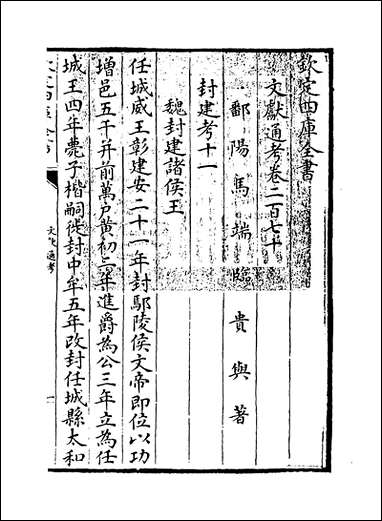 欽定四庫全書
文獻通考卷二百七十
鄱陽馬端臨貴與著
封建考十一
魏封建諸侯王
任城威王彰建安二十一年封鄢陵侯文帝即位以功
增邑五千并前萬戶黃初二年進爵為公三年立為任
城王四年薨子楷嗣徙封中牟五年改封任城縣太和
文獻通考